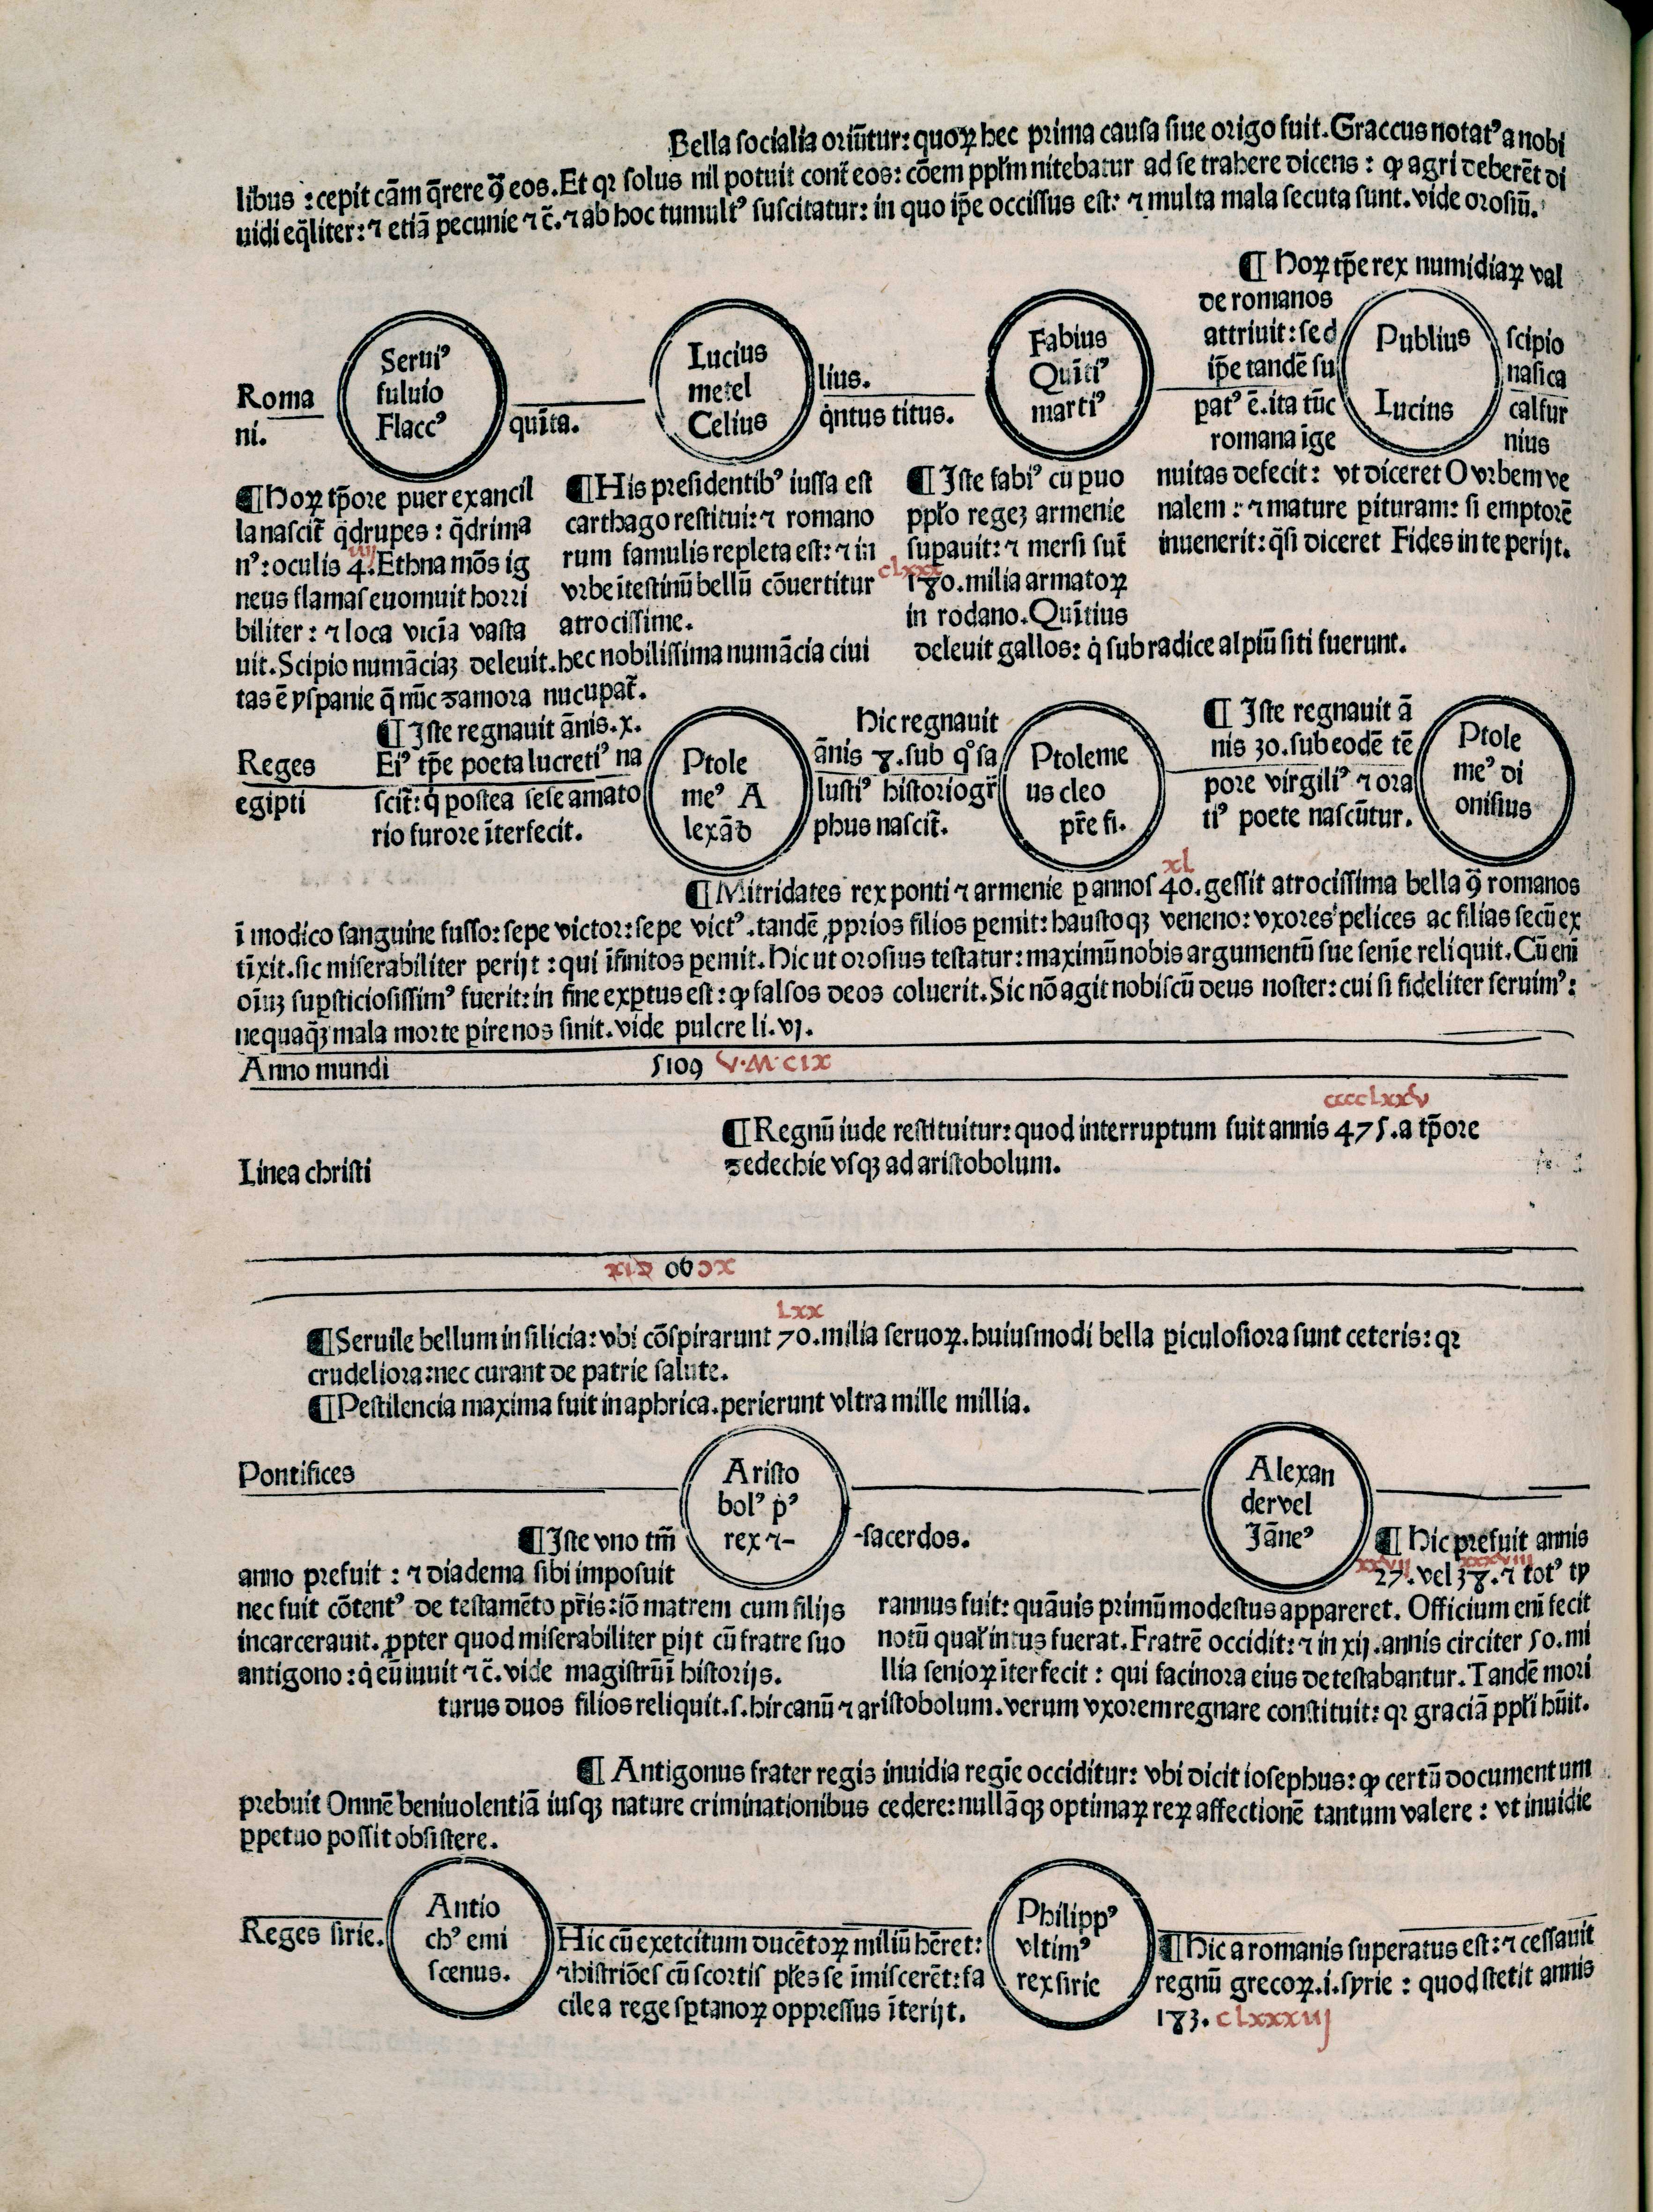 Bella ſocialia oriũtur: quoꝝ hec prima cauſa ſiue origo fuit. Graccus notatꝰ a nobi
libus : cepit cãm q̃rere ꝯ̃ eos. Et qꝛ ſolus nil potuit cont̃ eos: cõem ppl̃m nitebatur ad ſe trahere dicens : ꝙ agri deberẽt di
uidi eq̃liter: ⁊ etiã pecunie ⁊ c̃. ⁊ ab hoc tumultꝰ ſuſcitatur: in quo ip̃e occiſſus eſt: ⁊ multa mala ſecuta ſunt. vide oroſiũ.
¶ Hoꝝ tp̃e rex numidiaꝝ val
de romanos
attriuit: ſed
ip̃e tandẽ ſu
patꝰ ẽ. ita tũc
romana ĩge
nuitas defecit: vt diceret O vrbem ve
nalem : ⁊ mature ꝑituram: ſi emptorẽ
inuenerit: q̃ſi diceret Fides in te perijt.
Publius
Lucius
ſcipio
naſica
calfur
nius
Roma
ni.
Seruiꝰ
fuluio
Flaccꝰ
quĩta.
Lucius
metel
Celius
lius.
q̃ntus titus.
Fabius
Quĩtiꝰ
martiꝰ
¶Hoꝝ tp̃ore puer ex ancil
la naſcit̃ q̃drupes : q̃drima
nꝰ: oculis 4. Ethna mõs ig
iiij
neus flamaſ euomuit horri
biliter : ⁊ loca vicĩa vaſta
uit. Scipio numãciaꝫ deleuit. hec nobiliſſima numãcia ciui
tas ẽ yſpanie q̃ nũc zamora nucupat̃.
¶His preſidentibꝰ iuſſa eſt
carthago reſtitui: ⁊ romano
rum famulis repleta eſt: ⁊ in
vrbe ĩteſtinũ bellũ cõuertitur
atrociſſime.
¶Iſte fabiꝰ cũ puo
ppl̃o regeꝫ armenie
ſuꝑauit: ⁊ merſi ſut̃
clxxx
180. milia armatoꝝ
in rodano. Quĩtius
deleuit gallos: q̇ ſub radice alpiũ ſiti fuerunt.
Reges
egipti
¶ Iſte regnauit ãnis. x.
Eiꝰ tp̃e poeta lucretiꝰ na
ſcit̃: q̇ poſtea ſeſe amato
rio furore ĩterfecit.
Ptole
meꝰ A
lexãd
Hic regnauit
ãnis 8. ſub qͦ ſa
luſtiꝰ hiſtoriogr̃
phus naſcit̃.
Ptoleme
us cleo
pr̃e fi.
¶ Iſte regnauit ã
nis 30. ſub eodẽ tẽ
pore virgiliꝰ ⁊ ora
tiꝰ poete naſcũtur.
Ptole
meꝰ di
oniſius
xl
¶Mitridates rex ponti ⁊ armenie ꝑ annoſ 40. geſſit atrociſſima bella ꝯ̃ romanos
ĩ modico ſanguine fuſſo: ſepe victor: ſepe victꝰ. tandẽ ꝓprios filios ꝑemit: hauſtoqꝫ veneno: vxores pelices ac filias ſecũ ex
tĩxit. ſic miſerabiliter perijt : qui ĩfinitos ꝑemit. Hic ut oroſius teſtatur: maximũ nobis argumentũ ſue ſenie reliquit. Cũ eni
oĩuꝫ ſuꝑſticioſiſſimꝰ fuerit: in fine exꝑtus eſt : ꝙ falſos deos coluerit. Sic nõ agit nobiſcũ deus noſter: cui ſi fideliter ſeruimꝰ:
nequaqꝫ mala morte ꝑire nos ſinit. vide pulcre li. vj.
Anno mundi
5109 V·M·CIX
ccccLxxv
¶Regnũ iude reſtituitur: quod interruptum fuit annis 475. a tp̃ore
zedechie vſqꝫ ad ariſtobolum.
Linea chriſti
90 xc
Lxx
¶Seruile bellum in ſilicia: vbi cõſpirarunt 70. milia ſeruoꝝ. huiuſmodi bella ꝑiculoſiora ſunt ceteris: qꝛ
crudeliora: nec curant de patrie ſalute.
¶Peſtilencia maxima fuit in aphrica. perierunt vltra mille millia.
Pontifices
Ariſto
bolꝰ pꝰ
rex ⁊-
-ſacerdos.
Alexan
der vel
Jãneꝰ
¶Iſte vno tm̃
anno prefuit : ⁊ diadema ſibi impoſuit
nec fuit cõtentꝰ de teſtamẽto pr̃is: iõ matrem cum filijs
incarcerauit. ꝓpter quod miſerabiliter ꝑijt cũ fratre ſuo
antigono : q̇ eũ iuuit ⁊ c̃. vide magiſtrũ ĩ hiſtorijs.
¶ Hic prefuit annis
xxvii xxxviii
27. vel 38. ⁊ totꝰ ty
rannus fuit: quãuis primũ modeſtus appareret. Officium eni fecit
notũ qual̃ intus fuerat. Fratrẽ occidit: ⁊ in xij. annis circiter 50. mi
llia ſenioꝝ ĩterfecit : qui facinora eius deteſtabantur. Tandẽ mori
turus duos filios reliquit. ſ. hircanũ ⁊ ariſtobolum. verum vxorem regnare conſtituit: qꝛ graciã ppl̃i hũit.
¶ Antigonus frater regis inuidia regie occiditur: vbi dicit ioſephus: ꝙ certũ documentum
prebuit Omnẽ beniuolentiã iuſqꝫ nature criminationibus cedere: nullãqꝫ optimaꝝ reꝝ affectionẽ tantum valere : vt inuidie
ꝑpetuo poſſit obſiſtere.
Reges ſirie.
Antio
chꝰ emi
ſcenus.
Hic cũ exetcitum ducẽtoꝝ miliũ hẽret:
⁊ hiſtriões cũ ſcortiſ pl̃es ſe ĩmiſcerẽt: fa
cile a rege ſꝑtanoꝝ oppreſſus ĩterijt.
Philippꝰ
vltimꝰ
rex ſirie
¶Hic a romanis ſuperatus eſt: ⁊ ceſſauit
regnũ grecoꝝ. i. ſyrie : quod ſtetit annis
183. clxxxiij